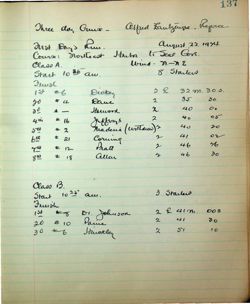 137
Three day Cruise - Alfred
First Day's Run. August 22, 1945
Course: Northeast Harbor to Seal Cove.
Class A. Wind - N-NE
Start 10 20 am. 8 Starters
Finish
1st # 6 2 h 32 m. 30 s.
2d # 11 Dane 2 35 30
3d # Howard 2 40 00
4th # 16 Jeffreys 2 40 05
5th # 2 Madeira (withdrew) 2 40 30
6th # 21 Corning 2 41 02
7th # 12 Pratt 2 46 26
8th # 18 Allen 2 46 30
Class B.
Start 10 25 am. 3 Starters
Finish
1st # 5 Dr. Johnson 2 h 41 m. 00 s
2d # 10 Paine 2 41 30
3d # 6 2 51 10